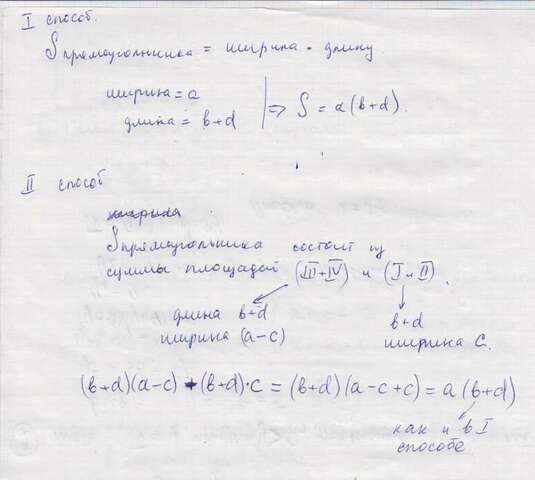 I способ.
S прямоугольника = ширина · длину
ширина = a
длина = b+d
=> S = a(b+d).
II способ
ширина
S прямоугольника состоит из
суммы площадей (III+IV) и (I и II).
длина b+d
ширина (a-c)
b+d
ширина c.
(b+d)(a-c) + (b+d)·c = (b+d)(a-c+c) = a(b+d)
как и в I
способе